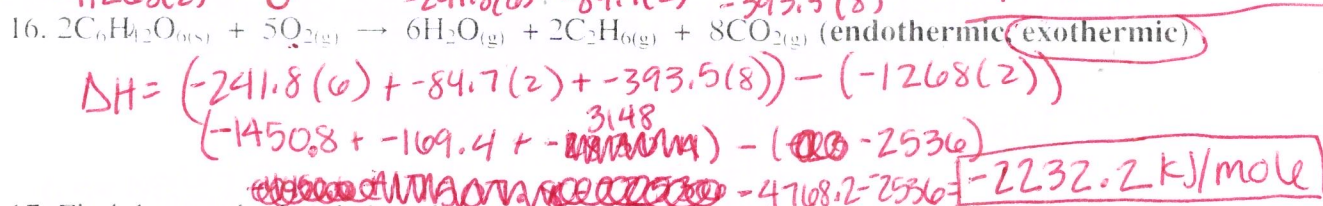 16. 2C₆H₁₂O₆(s) + 5O₂(g) → 6H₂O(g) + 2C₂H₆(g) + 8CO₂(g) (endothermic/exothermic)
ΔH = (-241.8(6) + -84.7(2) + -393.5(8)) - (-1268(2))
(-1450.8 + -169.4 + -3148) - (-2536)
-4768.2 - -2536 = -2232.2 kJ/mole